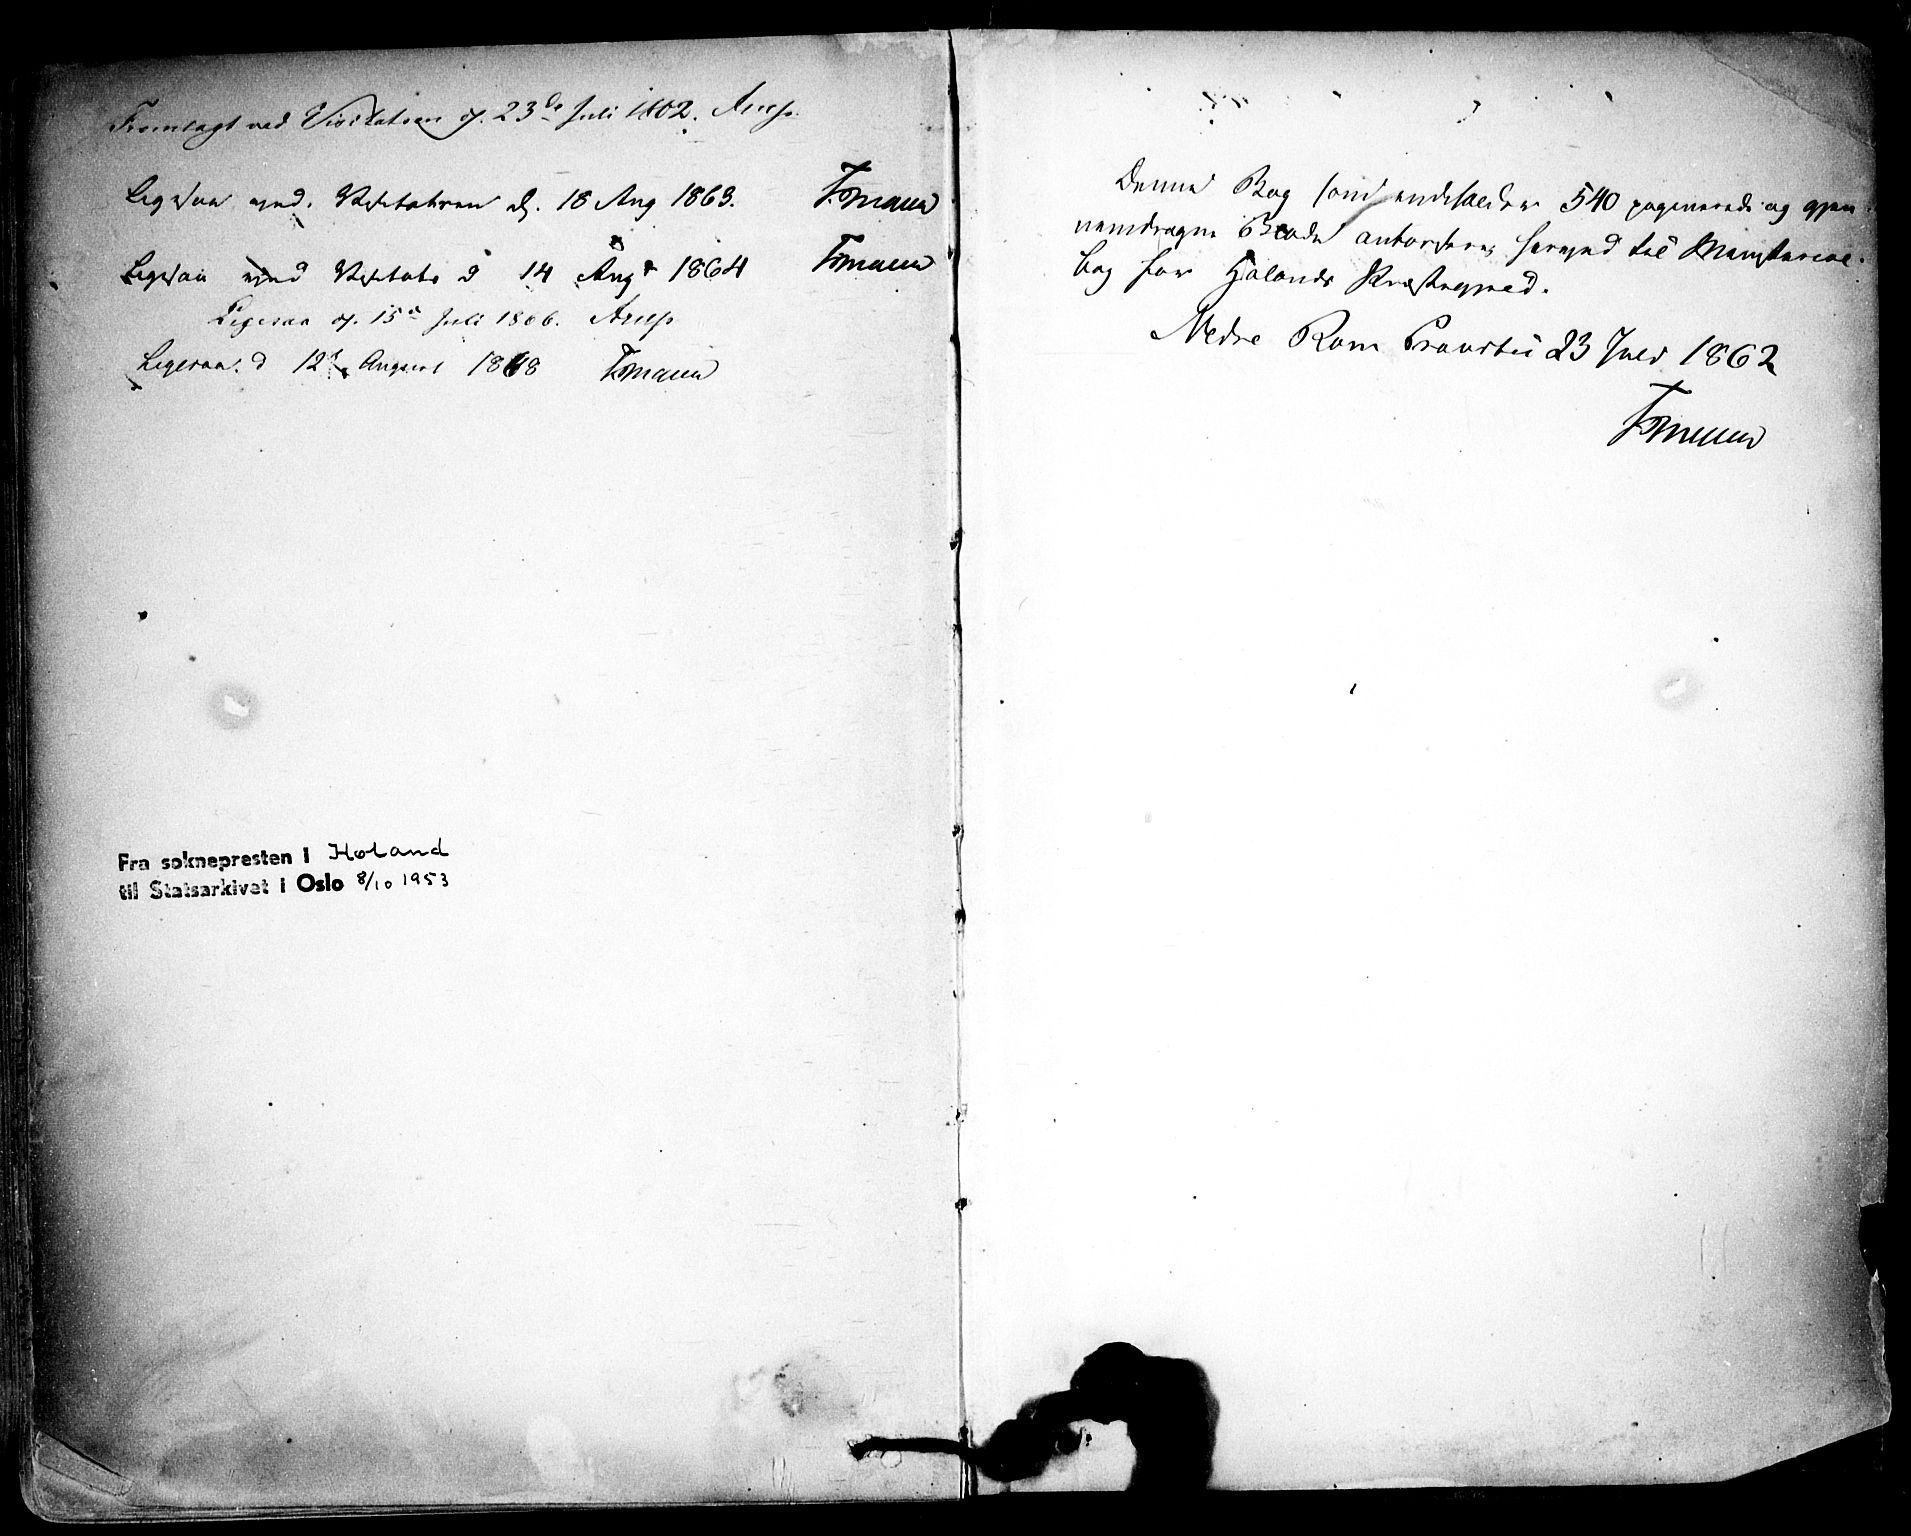 Fremlagt ved Visitatsen d. 23de Juli 1862. Arup.
Ligesaa ved Visitatsen d. 18 Aug 1863.
Ligesaa ved Visitats d 14 Augt 1864
Ligesaa d. 15de Juli 1866. Arup
Ligesaa d 12te August 1868
Fra soknepresten i Høland
til Statsarkivet i Oslo 8/10 1953
Denne Bog som indeholder 540 paginerede og gjen-
nemdragne Blade autoriseres herved til Ministerial-
bog for Hølands Præstegjeld.
Nedre Rom Provsti 23 Juli 1862